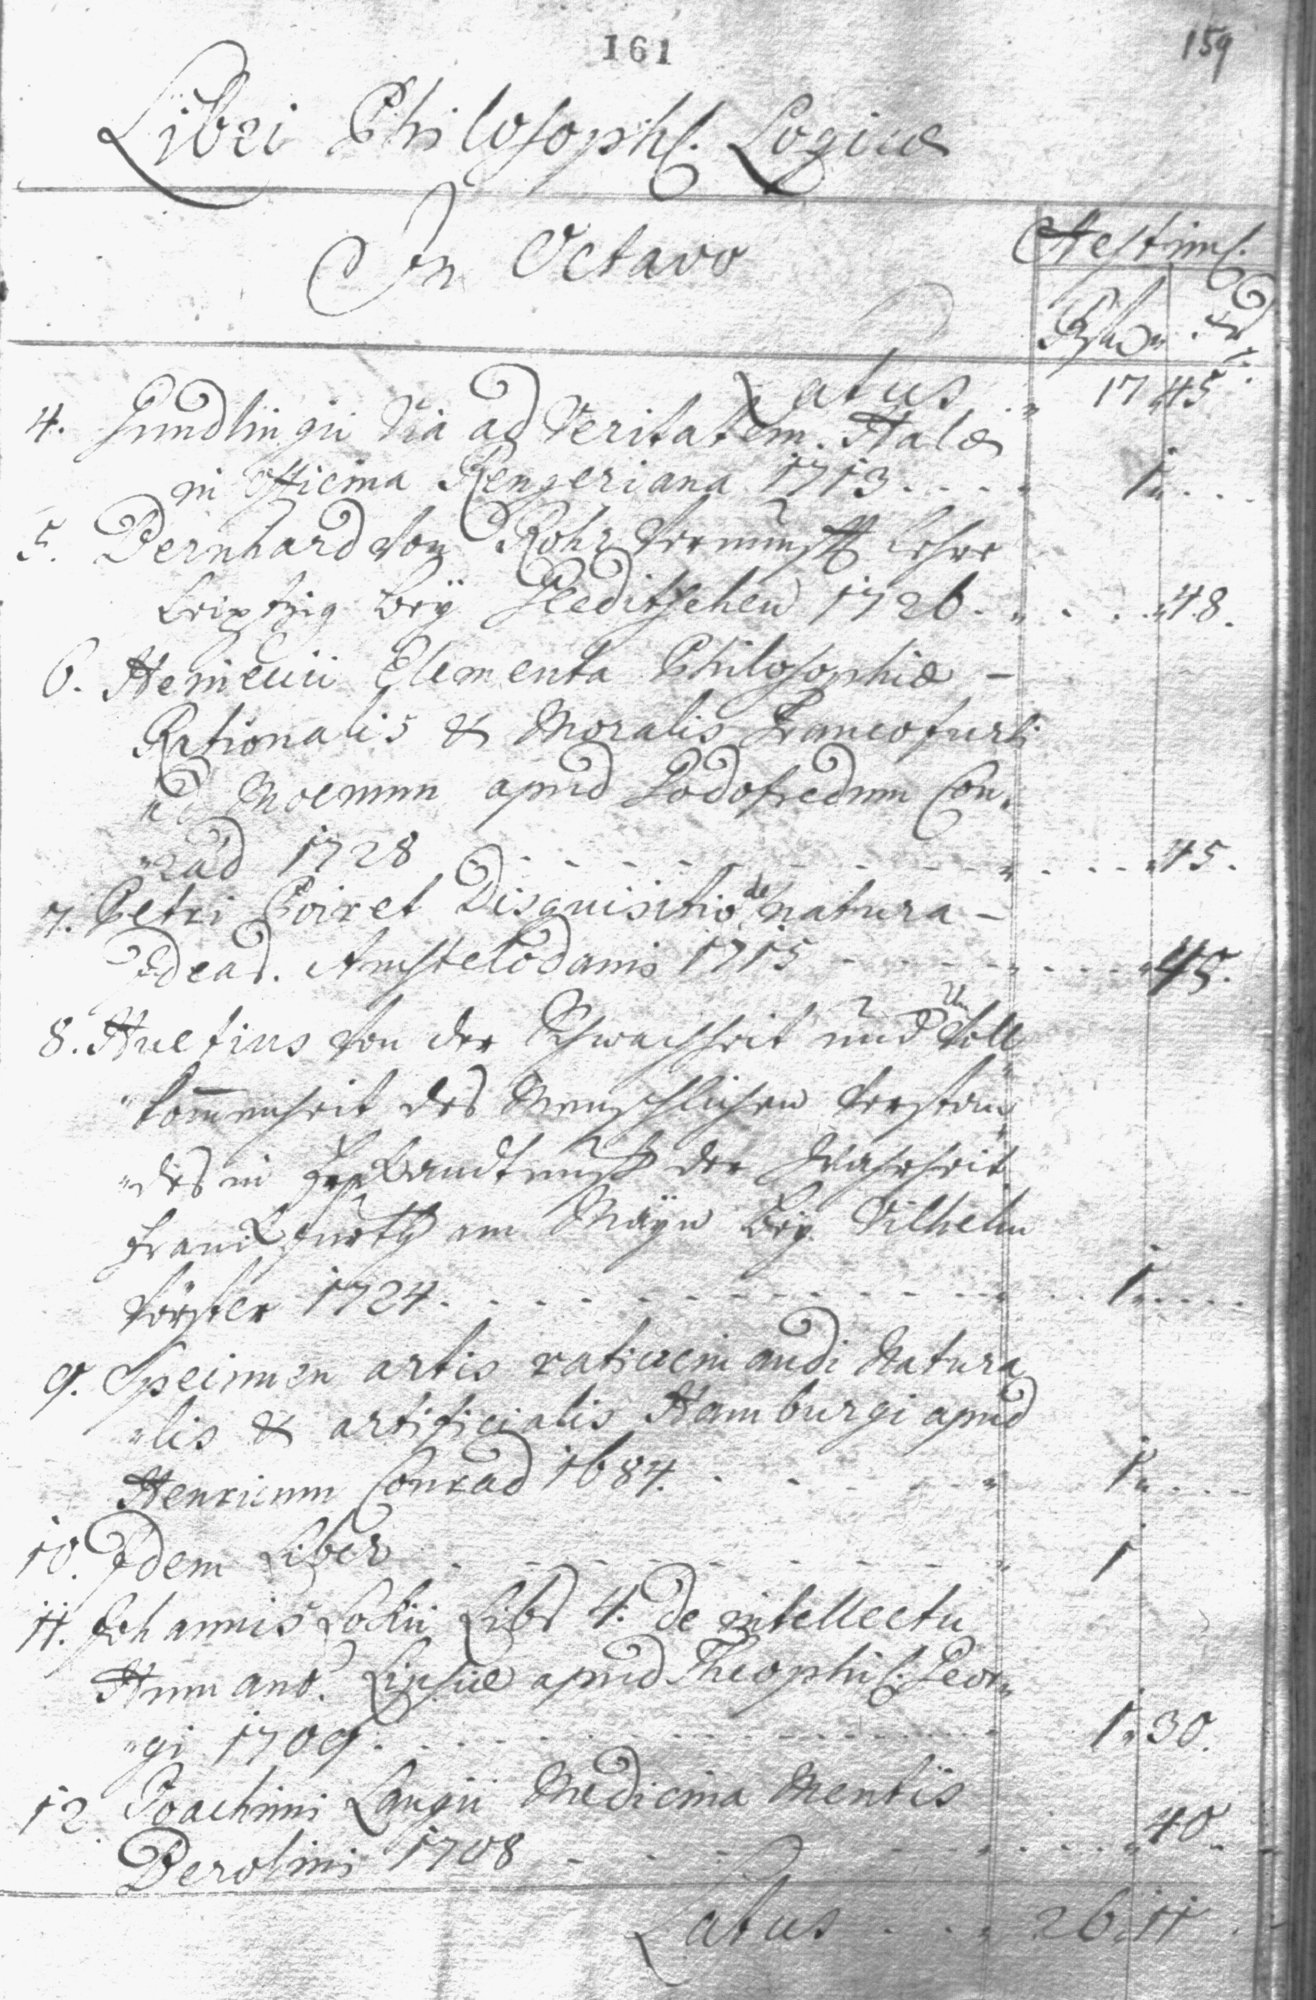 161
159
Libri Philosoph. Logicæ
In Octavo
Aestim.
Latus 17 45
4. Gundlingii Via ad Veritatem. Halæ
in Officina Rengeriana 1713. 1
5. Bernhard von Rohr Vernunfft Lehre
Leiptzig bey Gleditschen 1726. 48.
6. Heineccii Elementa Philosophiæ
Rationalis & Moralis Francofurti
ad Moenum apud Godofredum Con„
„rad 1728 45.
7. Petri Poiret Disquisitio de natura
Idear. Amstelodami 1715 45.
8. Huetius von der Schwachheit und Unvoll
„kom̅enheit des Menschlichen Verstan„
„des in Erkandtnuß der Wahrheit
Franckfurth am Mayn bey Vilhelm
Förster 1724. 1
9. Specimen artis ratiocinandi Natura
„lis & artificialis Hamburgi apud
Henricum Conrad 1684. 1
10. Idem Liber 1
11. Johannis Lockii Libr 4. de intellectu
Humano. Lipsiæ apud Theophil. Geor„
„gi 1709. 1. 30.
12. Joachimi Langii Medicina Mentis
Berolini 1708 40.
Latus 26. 11